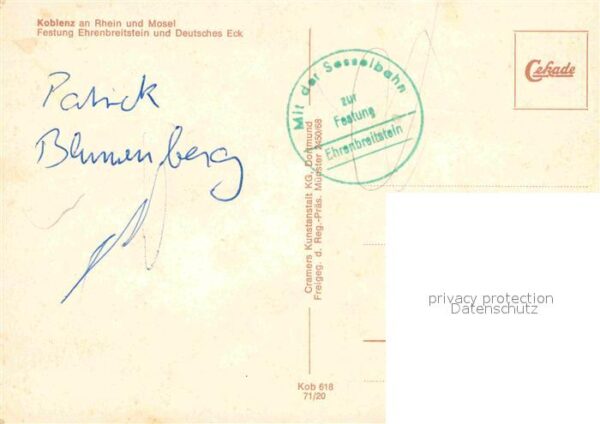 Koblenz an Rhein und Mosel
Festung Ehrenbreitstein und Deutsches Eck
Patrick
Blumenberg
Mit der Sesselbahn
zur
Festung
Ehrenbreitstein
Cekade
Cramers Kunstanstalt KG, Dortmund
Freigeg. d. Reg.-Präs. Münster 2450/68
Kob 618
71/20
privacy protection
Datenschutz